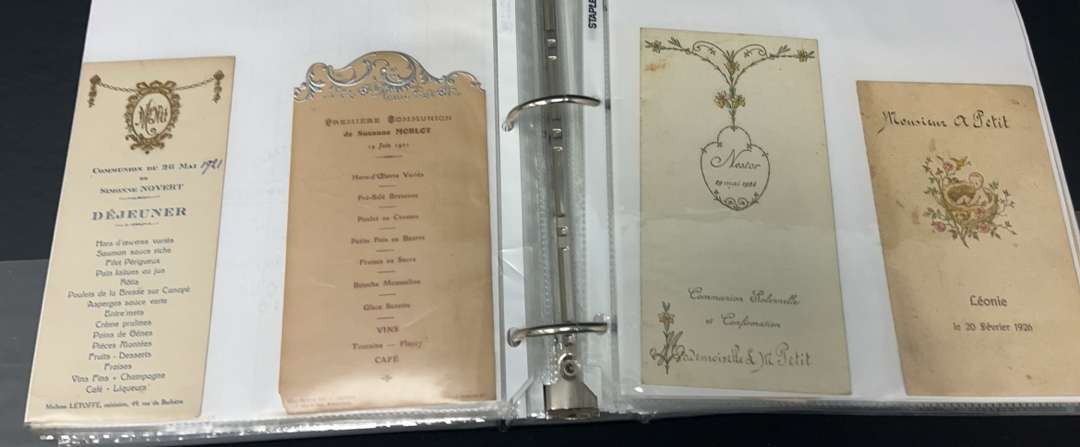 STAPLES
Menu
COMMUNION DU 26 MAI 1921
DE
SIMONNE NOVERT
DÉJEUNER
Hors d'œuvres variés
Saumon sauce riche
Filet Périgueux
Pain laitues au jus
Rôtis
Poulets de la Bresse sur Canapé
Asperges sauce verte
Entre'mets
Crème pralinée
Pains de Gênes
Pièces Montées
Fruits - Desserts
Fraises
Vins Fins - Champagne
Café - Liqueurs
Maison LETOFFE, 49, rue de
PREMIÈRE COMMUNION
de Suzanne MORLOT
Juin
Hors-d'Œuvre Variés
Pré-Salé
Poulet au Cresson
Petits Pois au Beurre
Fraises au Sucre
Bouche Mousseline
Glace
VINS
Touraine - Fleury
CAFÉ
Nestor
29 mai
Communion Solennelle
et Confirmation
Mademoiselle Petit
Monsieur A Petit
Léonie
le 20 Février 1926